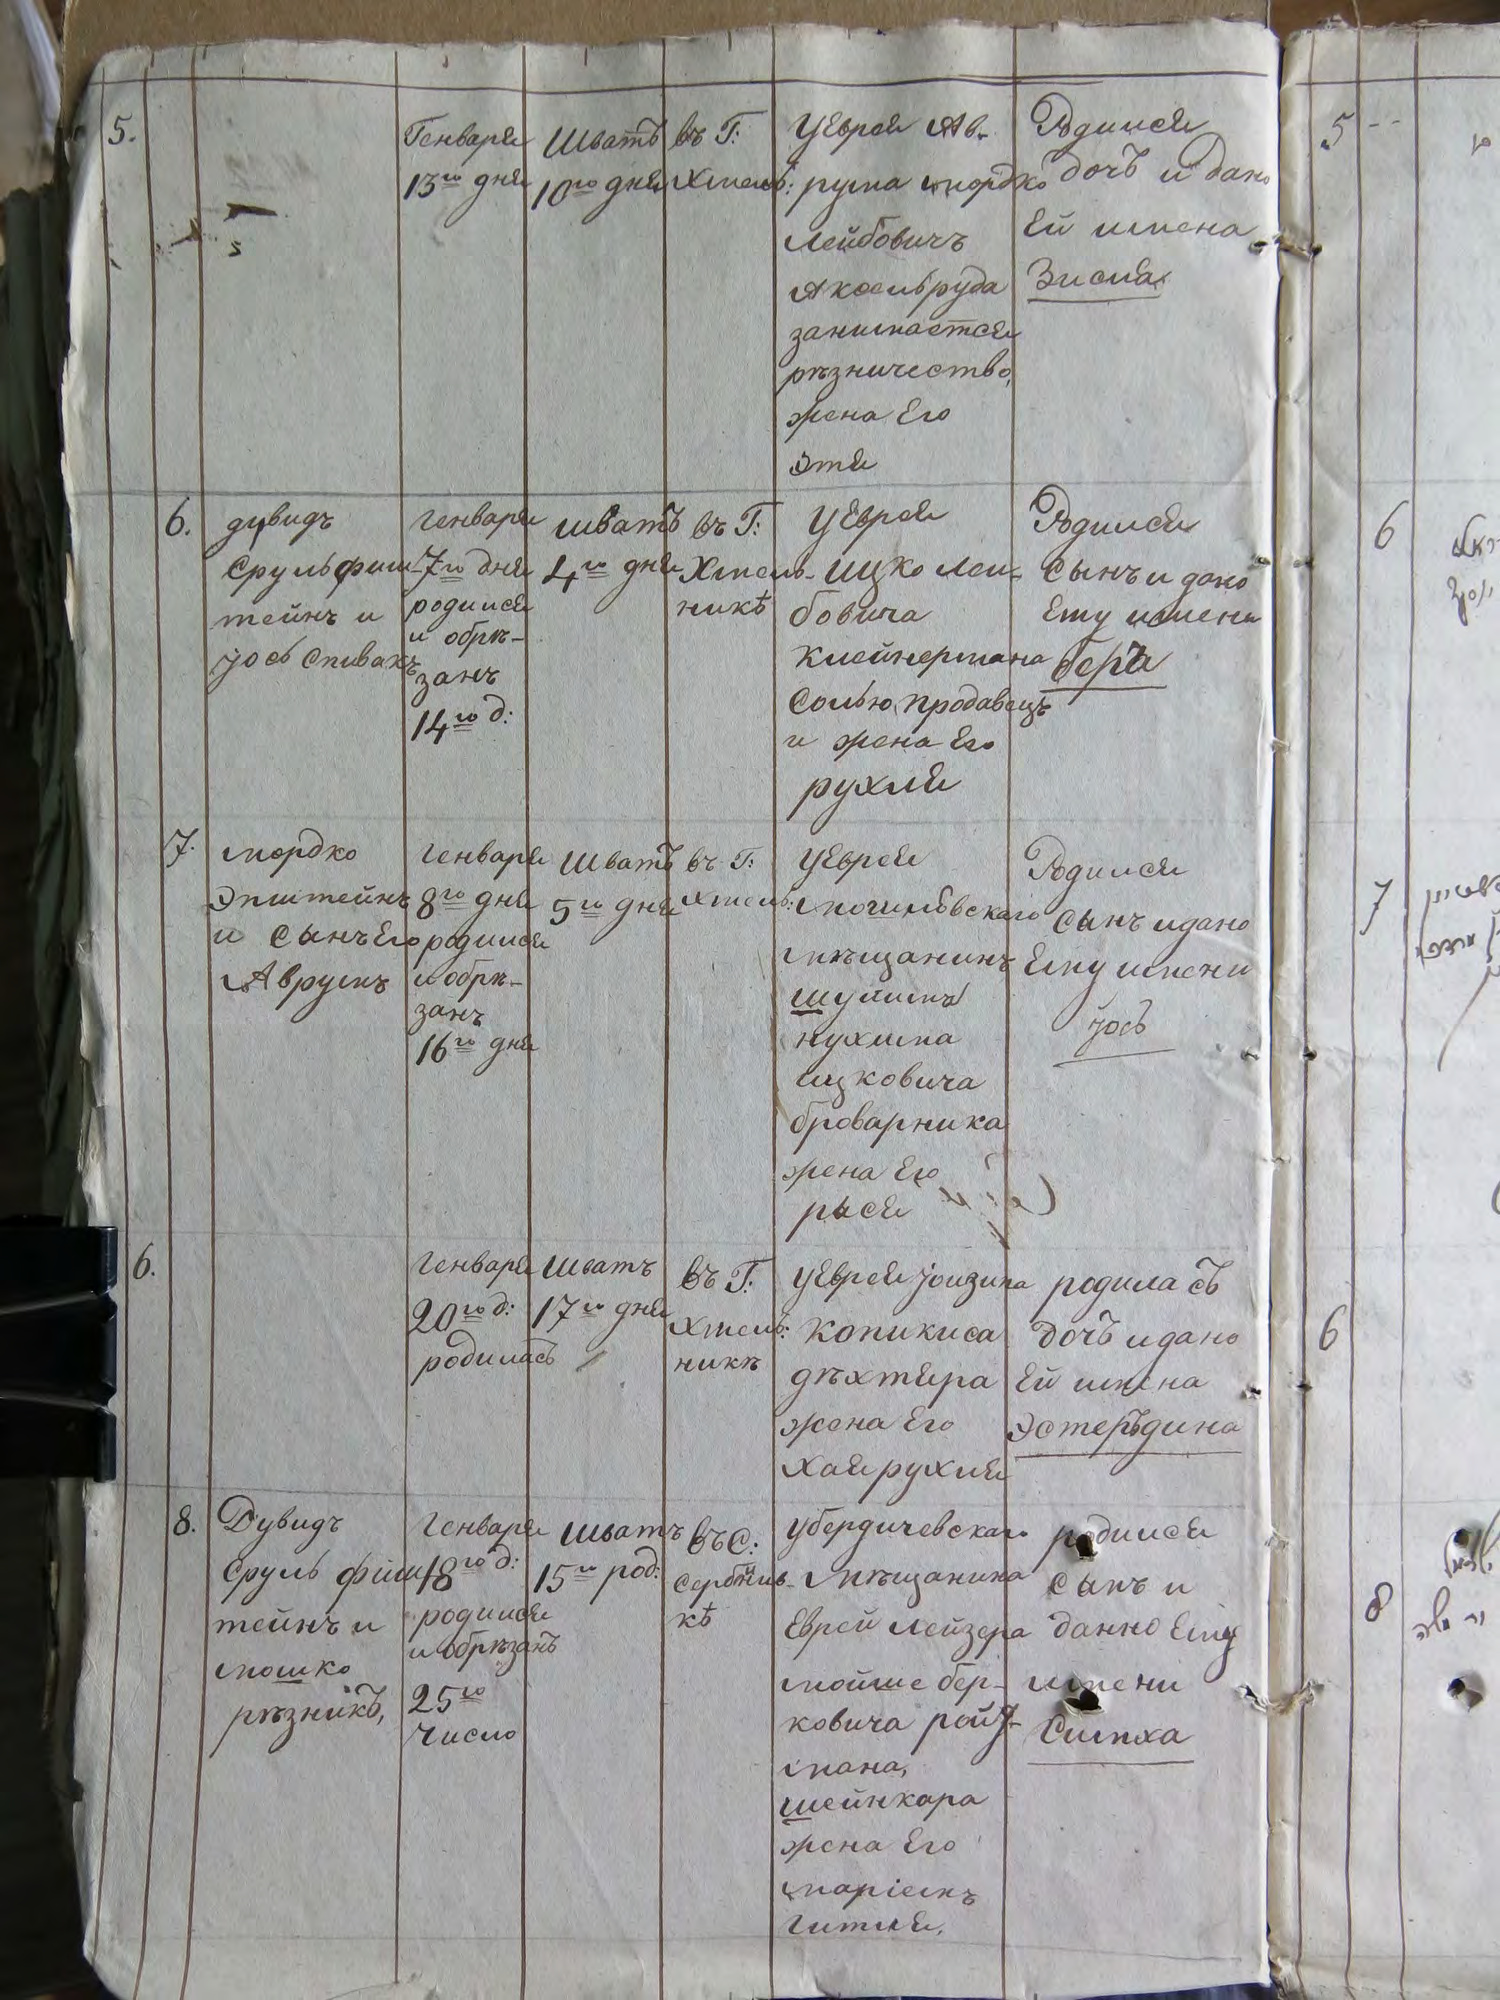 5.
Генваря
13го дня
Шватъ
10го дня
въ Г:
Хмель:
У Еврея Ав-
рума мордко
Лейбовичъ
Аксельруда
занимается
рѣзничество,
жена Его
Этя
Родилися
дочь и дано
Ей имена
Зисля
5
6.
дувидъ
Сруль фиш-
тейнъ и
Іось Спивакъ
Генваря
7го дня
родился
и обрѣ-
занъ
14го д:
Шватъ
4го дня
въ Г:
Хмель-
никѣ
У Еврея
Ицко Леи-
бовича
Клейнермана
Солью продавецъ
и жена Его
рухля
Родился
Сынъ и дано
Ему имени
беръ
6
7.
мордко
Эпштейнъ
и Сынъ Его
Аврумъ
Генваря
8го дня
родился
и обрѣ-
занъ
16го дня
Шватъ
5го дня
въ Г:
Хмель:
У Еврея
могилевскаго
мѣщанинъ
Шулимъ
нухима
ицковича
броварника
жена Его
рыся
Родился
Сынъ и дано
Ему имени
Іось
7
6.
Генваря
20го д:
родилась
Шватъ
17го дня
въ Г:
Хмель:
никѣ
У Еврея Іоизипа
Копикиса
дѣхтяра
жена Его
Хая рухля
родила сь
дочь и дано
Ей имена
Эстеръ дина
6
8.
Дувидъ
Сруль фиш-
тейнъ и
мошко
рѣзникъ,
Генваря
18го д:
родился
и обрѣзанъ
25го
число
Шватъ
15го род:
въ С:
Сербинов-
кѣ
У бердичевскаго
мѣщанина
Еврей Лейзера
мойше бер-
ковича рой-
мана,
Шейнкара
жена Его
маріемъ
гитля,
родился
Сынъ и
данно Ему
имени
Симха
8